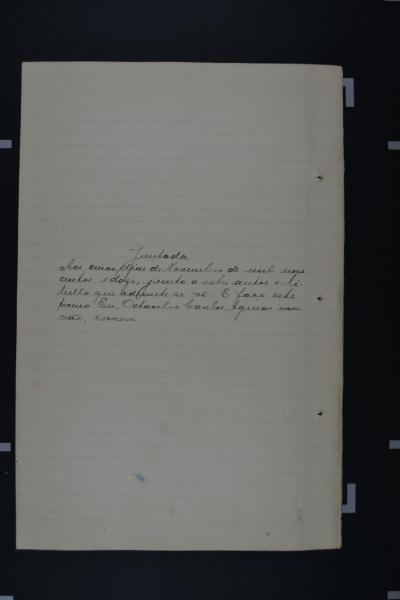 Juntada
Aos cinco dias de Novembro de mil nove
centos e doze, junto a estes autos o li-
bello que adiante se vê. E faço este
termo. Eu, Octacilio Carlos escri-
vão, escrevi